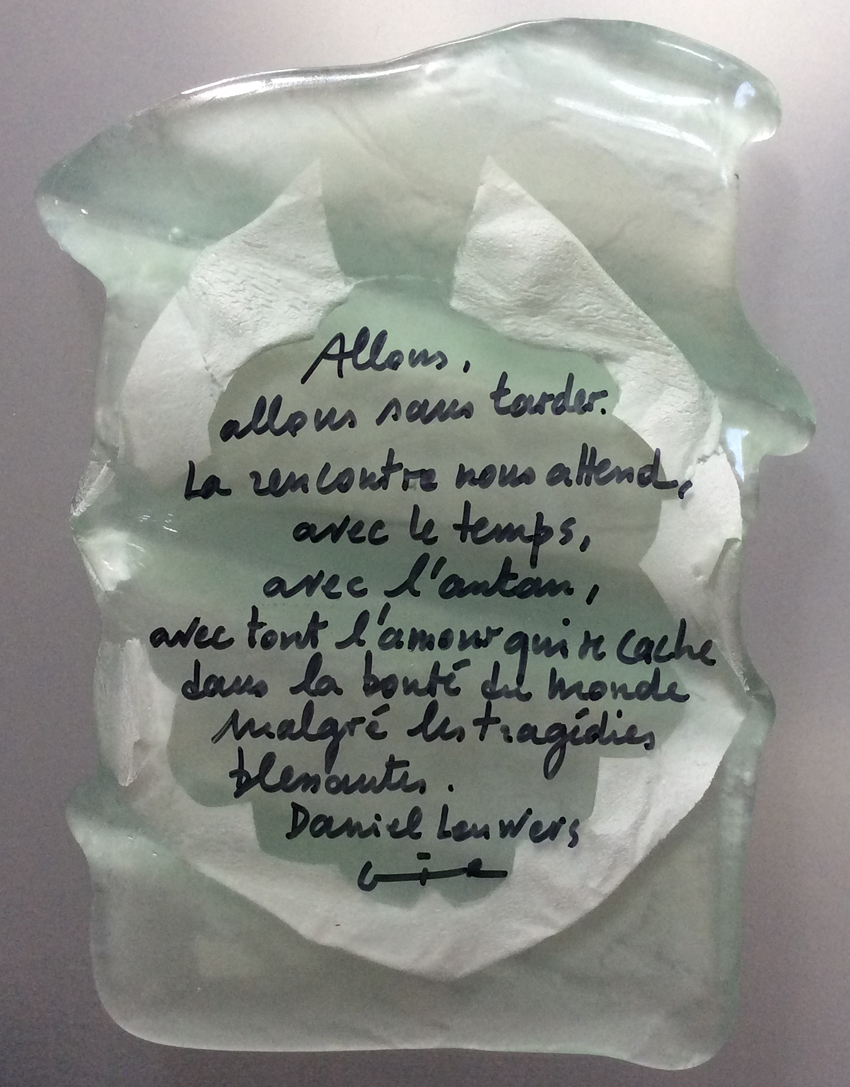 Allons,
allons sans tarder.
La rencontre nous attend,
avec le temps,
avec l'antan,
avec tout l'amour qui se cache
dans la bonté du monde
malgré les tragédies
blessantes.
Daniel Leuwers